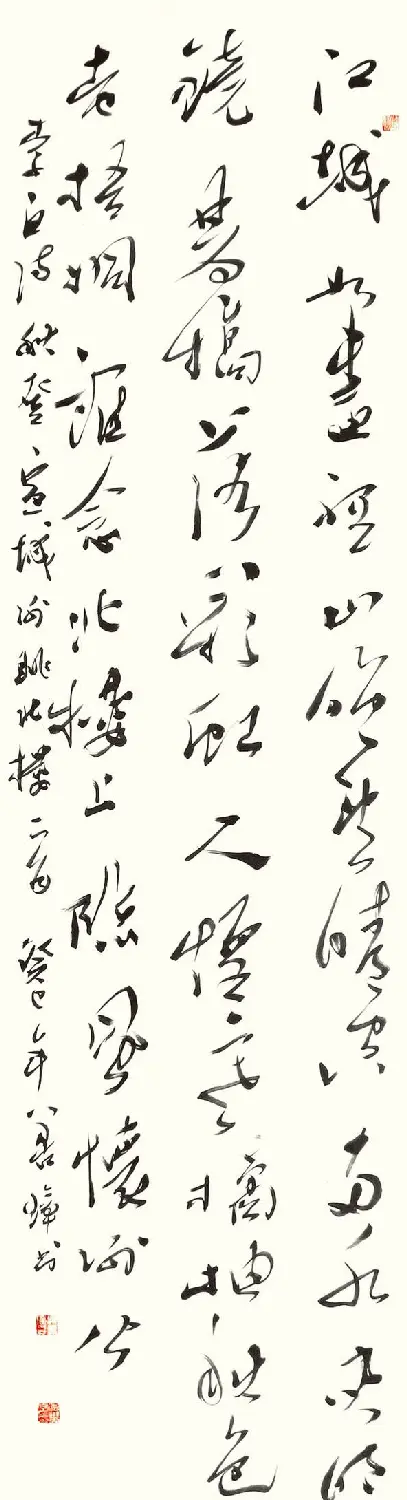 江城如畫裡山曉望晴空兩水夾明
鏡雙橋落彩虹人煙寒橘柚秋色
老梧桐誰念北樓上臨風懷謝公
李白詩秋登宣城謝朓北樓 癸巳年 書